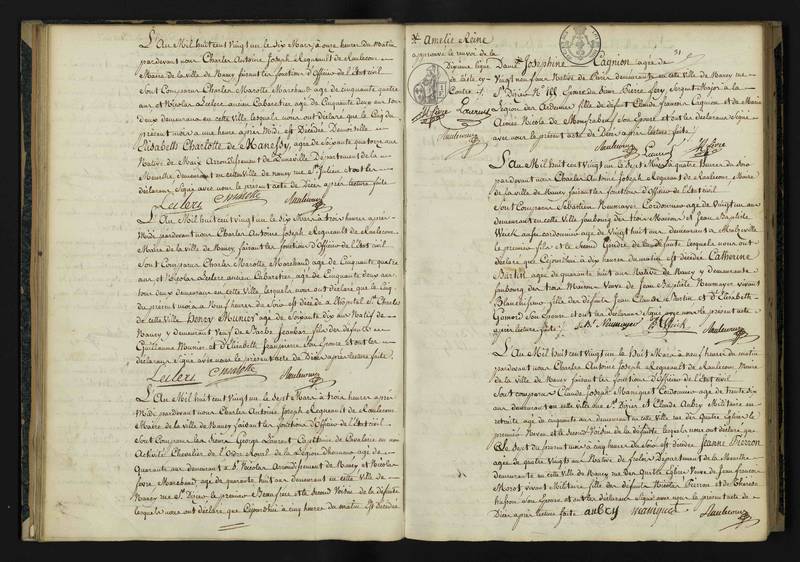 L'An Mil huit cent Vingt un le Six Mars à onze heures du Matin
pardevant nous Charles Antoine Joseph Regneault de Raulecour
Maire de la ville de Nancy faisant les fonctions d'Officier de l'Etat civil
Sont Comparus Charles Marotte Marchand age de cinquante quatre
ans et Nicolas Leclere ancien Cabaretier age de Cinquante deux ans tous
deux demeurant en cette Ville lesquels nous ont declaré que le Cinq du
présent mois à une heure après Midi est Décédée Demoiselle
Elisabeth Charlotte de age de Soixante quatorze ans
Native de Arrondissement de Lunéville Département de la
Meurthe, demeurant en cette Ville de nancy rue St Julien et ont les
declarans Signé avec nous le présent acte de Décès après lecture faite
Leclere C marotte
L'An Mil huit cent Vingt un le Six Mars à trois heures après
Midi pardevant nous Charles Antoine Joseph Regneault de Raulecour
Maire de la Ville de Nancy faisant les fonctions d'officier de l'Etat civil
Sont Comparus Charles Marotte Marchand age de Cinquante quatre
ans et Nicolas Leclere ancien Cabaretier age de Cinquante deux ans
tous deux demeurant en cette Ville, lesquels nous ont déclaré que le Cinq
du présent mois à Neuf heures du Soir est décédé à l'hôpital St Charles
de cette Ville Henry Munier age de Soixante dix ans Natif de
Nancy y demeurant Veuf de fils des défunts
Guillaume Munier et d'Elisabeth Son Epouse et ont les
declarans Signé avec nous le présent acte de Décès après lecture faite
Leclere C marotte
L'An Mil huit cent Vingt un le Sept Mars à trois heures après
Midi pardevant nous Charles Antoine Joseph Regneault de Raulecour
Maire de la Ville de Nancy faisant les fonctions d'Officier de l'Etat civil
Sont Comparus les Sieurs George Laurent Capitaine de Cavalerie en non
Activité Chevalier de l'Ordre Royal de la Légion d'honneur age de
Quarante ans demeurant a St Nicolas Arrondissement de Nancy et Nicolas
Marchand age de quarante huit ans demeurant en cette Ville de
Nancy rue St Dizier le premier Beau frere et le Second Voisin de la défunte
lesquels nous ont déclaré que Cejourd'hui à cinq heures du matin est décédée
* Amélie Reine
approuvé le renvoi de la
Dixieme ligne
de l'acte cy
Contre
Laurent
51
Dame Josephine Cagnon agée de
Vingt neuf ans Native de Paris demeurante en cette Ville de Nancy rue
St Dizier No 188 Epouse du Sieur Pierre Sergent Major à la
Légion des Ardennes fille de defunt Claude François Cagnon et de Marie
Anne Nicole de Son Epouse et ont les declarans Signé
avec nous le présent acte de Décès après lecture faite
Laurent
L'An Mil huit cent Vingt un le Sept Mars à quatre heures du Soir
pardevant nous Charles Antoine Joseph Regneault de Raulecour Maire
de la ville de Nancy faisant les fonctions d'Officier de l'Etat civil
Sont Comparus Sébastien Neumayer Cordonnier age de Vingt un ans
demeurant en cette Ville faubourg des trois Maisons et Jean Baptiste
Weick aussi cordonnier age de Vingt huit ans demeurant a
le premier fils et le Second Gendre de la défunte lesquels nous ont
déclaré que Cejourd'hui à dix heures du matin est décédée Catherine
Burtin agée de quarante huit ans Native de Nancy y demeurante
faubourg des trois Maisons Veuve de Jean Baptiste Neumayer Vivant
fille des défunts Jean Claude Burtin et d'Elisabeth
Son Epouse et ont les declarans Signé avec nous le présent acte
après lecture faite
Neumayer Weick
L'An Mil huit cent Vingt un le Huit Mars à neuf heures du matin
pardevant nous Charles Antoine Joseph Regneault de Raulecour Maire
de la Ville de Nancy faisant les fonctions d'officier de l'Etat civil
Sont comparus Claude Joseph Manigus Cordonnier age de trente six
ans demeurant en cette Ville rue St Dizier et Claude Aubry Militaire en
retraite age de cinquante ans demeurant en cette Ville rue des Quatre Eglises le
premier Neveu et le Second Voisin de la défunte, lesquels nous ont déclaré que
le Sept du present mois à cinq heures du Soir est décédée Jeanne Pierron
agée de quatre Vingts ans Native de Département de la Moselle
demeurante en cette Ville de Nancy rue des Quatre Eglises Veuve de Jean François
Morot vivant Militaire fille des défunts Nicolas Pierron et de Thérese
Son Epouse et ont les declarans Signé avec nous le présent acte de
Décès après lecture faite aubry manigus